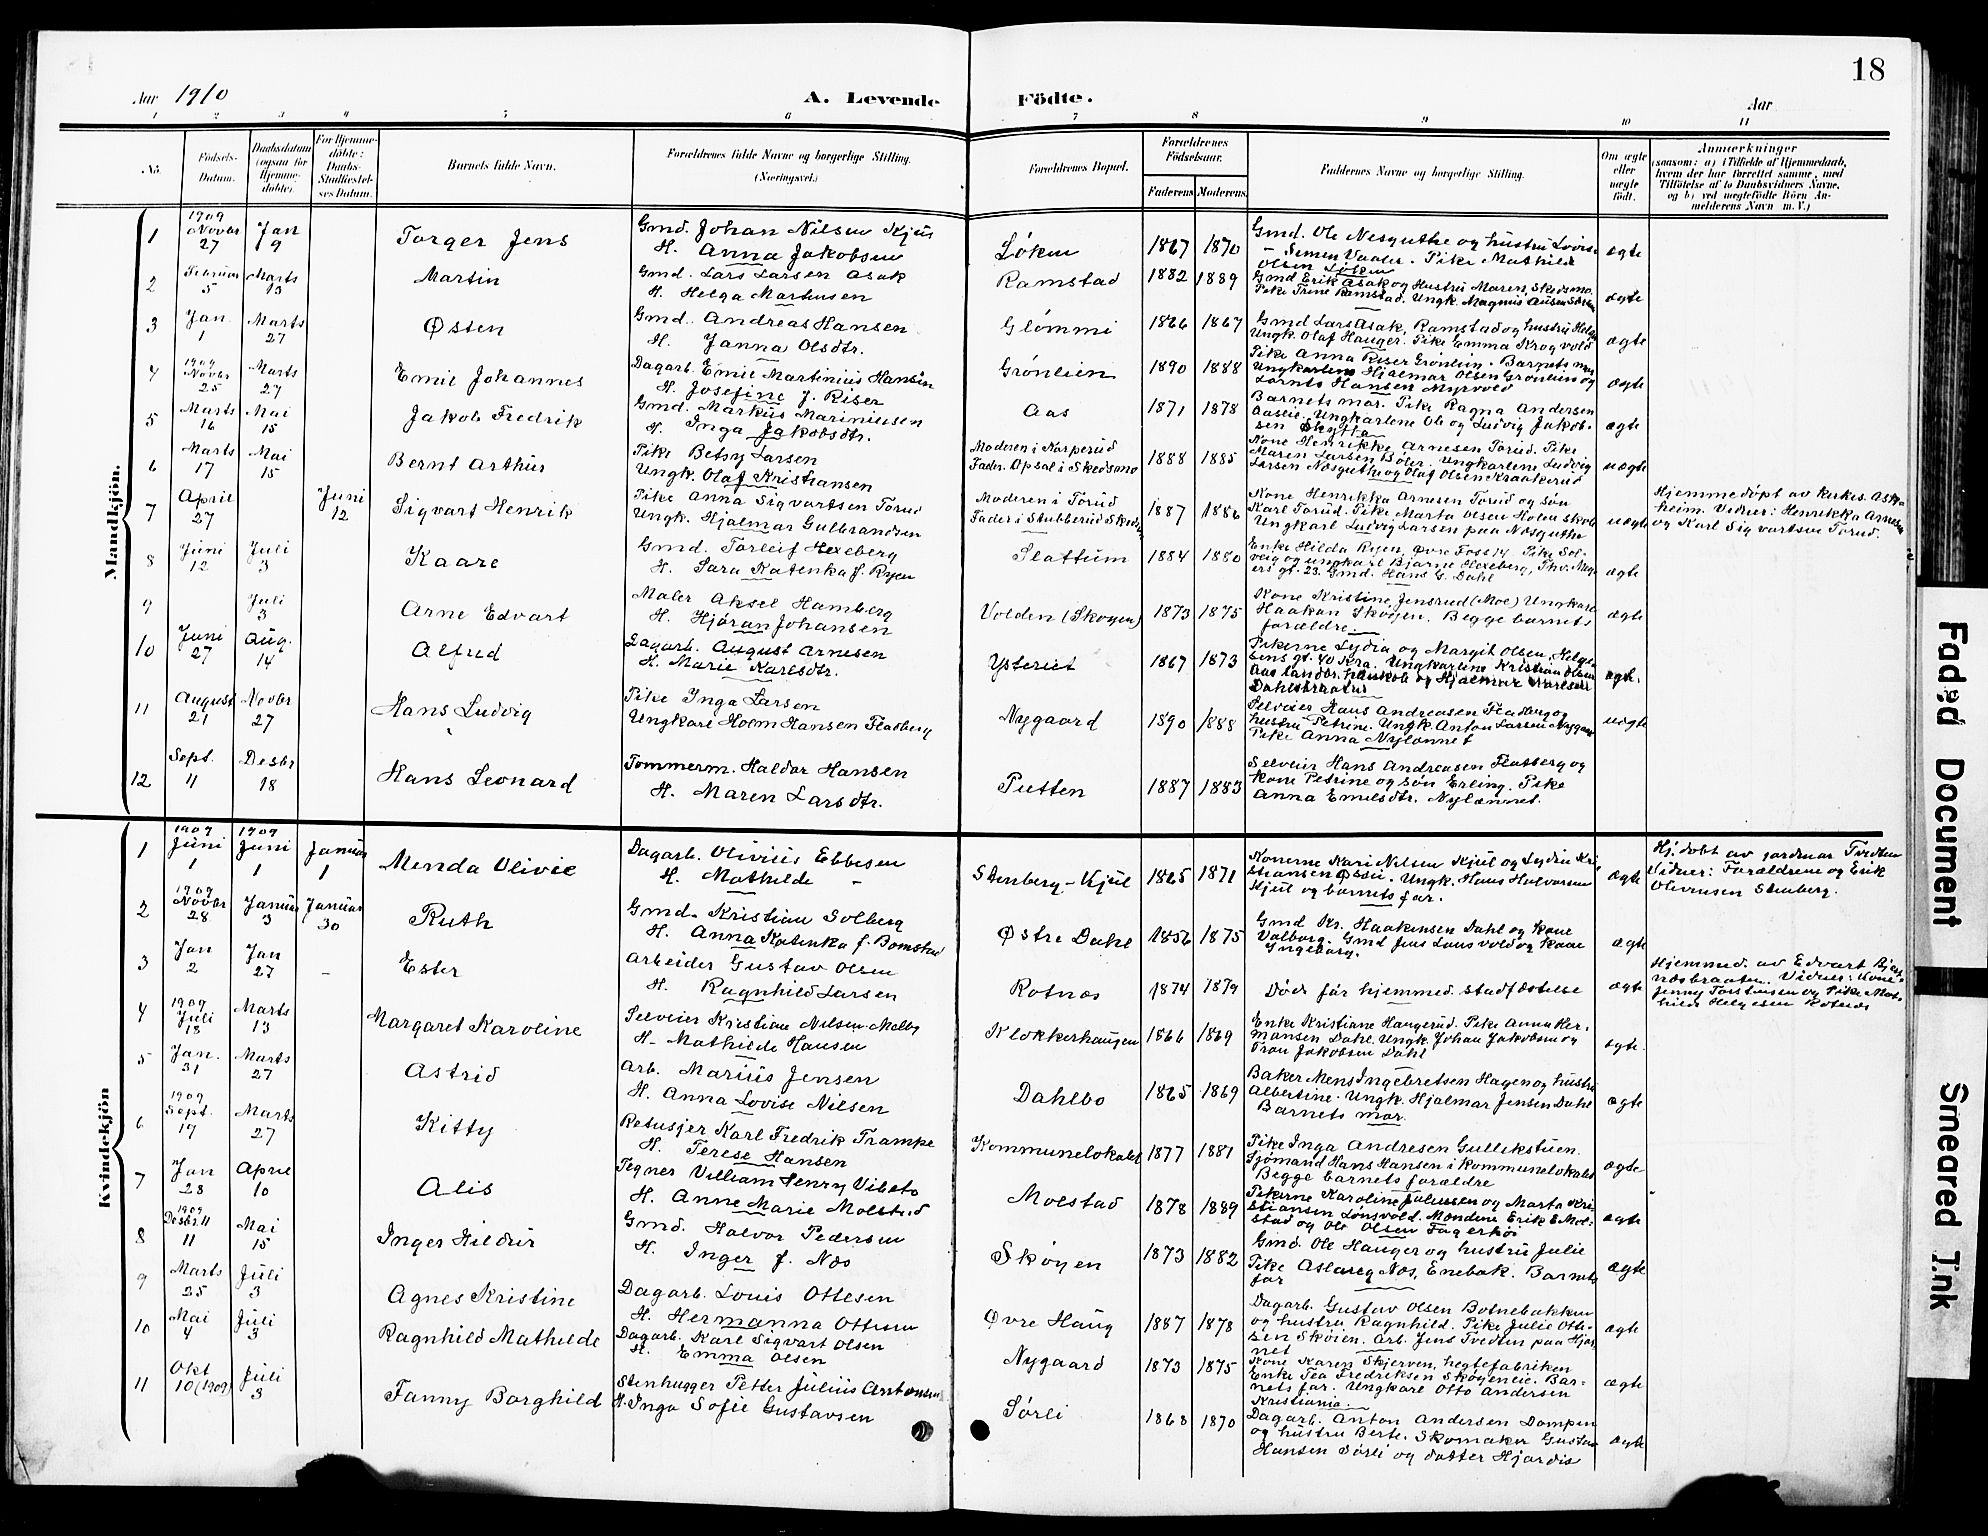 18
Aar 1910
A. Levende Födte.
Aar
1 2 3 4 5 6 7 8 9 10 11
No.
Födsels-
Datum.
Daabsdatum
(ogsaa for
Hjemme-
döbte).
For Hjemme-
döbte:
Daabs-
Stadfæstel-
ses Datum.
Barnets fulde Navn.
Forældrenes fulde Navne og borgerlige Stilling.
(Næringsvei.)
Forældrenes Bopæl.
Forældrenes
Födselsaar.
Faderens Moderens
Faddernes Navne og borgerlige Stilling.
Om ægte
eller
uægte
födt.
Anmærkninger
(saasom: a) i Tilfælde af Hjemmedaab,
hvem der har forrettet samme, med
Tilföielse af to Daabsvidners Navne,
og b) ved uegtefödte Börn An-
melderens Navn m. V.)
Mandkjön.
1 1909 Novbr 27 Jan 9 Torger Jens
Gmd. Johan Nilsen Kjus
H. Anna Jakobsen
Løken 1867 1870
Gmd. Ole Nesguthe og hustru Lovise
- Simen Vaaler. Pike Mathilde
Olsen Løken
ægte
2 Februar 5 Marts 13 Martin
Gmd. Lars Larsen Asak
H. Helga Martinsen
Ramstad 1882 1889
Gmd Erik Asak og Hustru Maren, Skedsmo.
Pike Trine Ramstad. Ungk. Magnus
ægte
3 Jan. 1 Marts 27 Østen
Gmd. Andreas Hansen
H. Janna Olsdtr.
Glømmi 1866 1867
Gmd Lars Asak, Ramstad og hustru Helga
Ungk. Olaf Hauger. Pike Emma Krogvold
ægte
4 1909 Novbr 25 Marts 27 Emil Johannes
Dagarb. Emil Martinius Hansen
H. Josefine f. Riser
Grønlien 1890 1888
Pike Anna Riser Grønlien. Barnets mor
Ungkarlene Hjalmar Olsen Grønlien og
Larnts Hansen Myrvold
ægte
5 Marts 16 Mai 15 Jakob Fredrik
Gmd. Markus Mariniusen
H. Inga Jakobsdtr.
Aas 1871 1878
Barnets mor. Pike Ragna Andersen
Aaslie. Ungkarlene Ole og Ludvig Jakob-
sen Skytta
ægte
6 Marts 17 Mai 15 Bernt Arthur
Pike Betsy Larsen
Ungk. Olaf Kristiansen
Moderen i Kasperud
Fader. Opsal i Skedsmo
1888 1885
Kone Henrikke Arnesen Torud. Pike
Maren Larsen Bøler. Ungkarlene Ludvig
Larsen Nosguthe og Olaf Olsen Kraakerud
uægte
7 April 27 Juni 12 Sigvart Henrik
Pike Anna Sigvartsen Torud
Ungk. Hjalmar Gulbrandsen
Moderen i Torud
Fader i Stubberud Skeds
1887 1886
Kone Henrikka Arnesen Torud og søn
Karl Torud. Pike Marta Olsen Holm skole
Ungkarl Ludvig Larsen paa Nosguthe
uægte
Hjemmedøpt av kirkes. Ask-
heim. Vidner: Henrikka Arnesen
og Karl Sigvartsen Torud.
8 Juni 12 Juli 3 Kaare
Gmd. Torleif Hexeberg
H. Sara Katenka f. Ryen
Slattum 1884 1880
Enke Hilda Ryen, Øvre Foss 14. Pike Sol-
veig og ungkarl Bjarne Hexeberg, Thv. Mey-
ers gt. 23. Gmd. Hans G. Dahl
ægte
9 Juli 3 Arne Edvart
Maler Aksel Hamberg
H. Hjøran Johansen
Volden (Skogen) 1873 1875
Kone Kristine Jensrud (Moe) Ungkarl
Haakan Skøyen. Begge barnets
forældre.
ægte
10 Juni 27 Aug. 14 Alfred
Dagarb. August Arnesen
H. Marie Karlsdtr.
Ysteriet 1867 1873
Pikerne Lydia og Margit Olsen, Helge-
sens gt. 40 Kra. Ungkarlene Kristian Olsen
Aas landbr. høiskole og Hjalmar Karlsen
Dahlsbraaten
ægte.
11 August 21 Novbr 27 Hans Ludvig
Pike Inga Larsen
Ungkarl Holm Hansen Fladberg
Nygaard 1890 1888
Selveier Hans Andreasen Fladberg og
hustru Petrine. Ungk. Anton Larsen Nygaard
Pike Anna Nylænnet
uægte
12 Sept. 11 Desbr 18 Hans Leonard
Tømmerm. Haldor Hansen
H. Maren Larsdtr.
Putten 1887 1883
Selveier Hans Andreasen Flatberg og
kone Petrine og søn Erling. Pike
Anna Emilsdtr. Nylænnet.
Kvindekjön
1 1909 Juni 1 1909 Juni 1 Januar 1 Menda Olivie
Dagarb. Olivius Ebbesen
H. Mathilde -
Stenberg - Kjul 1865 1871
Konerne Kari Nilsen Kjul og Lydia Kri-
stiansen Øssie. Ungk. Hans Halvorsen
Kjul og barnets far.
ægte
Hj. døbt av jordmor Tvedten
Vidner: Forældrene og Erik
Olivrusen Stenberg.
2 1909 Novbr 28 Januar 3 Januar 30 Ruth
Gmd. Kristian Solberg
H. Anna Katenka f. Bomstad
Østre Dahl 1856 1875
Gmd Kr. Haakensen Dahl og Kone
Valborg. Gmd Jens Lønsvold og kone
Ingeborg.
ægte
3 Jan 2 Jan 27 - Ester
Arbeider Gustav Olsen
H. Ragnhild Larsen
Rotnæs 1874 1879
Døde før hjemmed. stadfæstelse
ægte
Hjemmed. av Edvart Bjert-
næsbraaten. Vidner: Kone
Jenny Torstensen og Pike Mat-
hilde Helgesen Rotnæs
4 1909 Juli 18 Marts 13 Margaret Karoline
Selveier Kristian Nilsen Melby
H. Mathilde Hansen
Klokkerhaugen 1866 1869
Enke Kristiane Haugerud. Pike Anna Her-
mansen Dahl. Ungk. Johan Jakobsen og
Tron Jakobsen Dahl
ægte.
5 Jan. 31 Marts 27 Astrid
Arb. Marius Jensen
H. Anna Lovise Nilsen
Dahlbo 1865 1869
Baker Mens Ingebretsen Hagen og hustru
Albertine. Ungk. Hjalmar Jensen Dahl
Barnets mor.
ægte
6 1909 Sept. 17 Marts 27 Kitty
Retusjer Karl Fredrik Trampe
H. Terese Hansen
Kommunelokalet 1877 1881
Pike Inga Andresen Gullikstuen.
Sjømand Hans Hansen i kommunelokalet
Begge barnets forældre
ægte
7 Jan 28 April 10 Alis
Tegner Villiam Henry Vibeto
H. Anne Marie Molstad
Molstad 1878 1889
Pikerne Karoline Juliussen og Marta Kri-
stiansen Lønsvold. Mændene Erik E. Mol-
stad og Ole Olsen Fagerhøi
ægte
8 1909 Desbr. 11 11 Mai 15 Inger Hildur
Gmd. Halvor Pedersen
H. Inger f. Næs
Skøyen 1873 1882
Gmd. Ole Hauger og hustru Julie
Pike Aslaug Næs, Enebak. Barnets
far
ægte
9 Marts 25 Juli 3 Agnes Kristine
Dagarb. Louis Ottesen
H. Hermanna Ottesen
Øvre Haug 1887 1878
Dagarb. Gustav Olsen Botnebakken
og hustru Ragnhild. Pike Julie Otte-
sen Skøien. Arb. Jens Tvedten paa Hjor-
net
ægte
10 Mai 4 Juli 3 Ragnhild Mathilde
Dagarb. Karl Sigvart Olsen
H. Emma Olsen
Nygaard 1873 1875
Kone Karen Skjerven, hegtefabriken
Enke Tea Fredriksen Skøyeneie. Bar-
nets far. Ungkarl Otto Andersen
Kristiania.
ægte
11 Okt 10 (1909) Juli 3 Fanny Borghild
Stenhugger Petter Julius Antonsen
H. Inga Sofie Gustavsen
Sørli 1868 1870
Dagarb. Anton Andersen Dompen
og hustru Berte. Skomaker Gustav
Hansen Sørli og datter Hjørdis
ægte
Faded Document
Smeared Ink